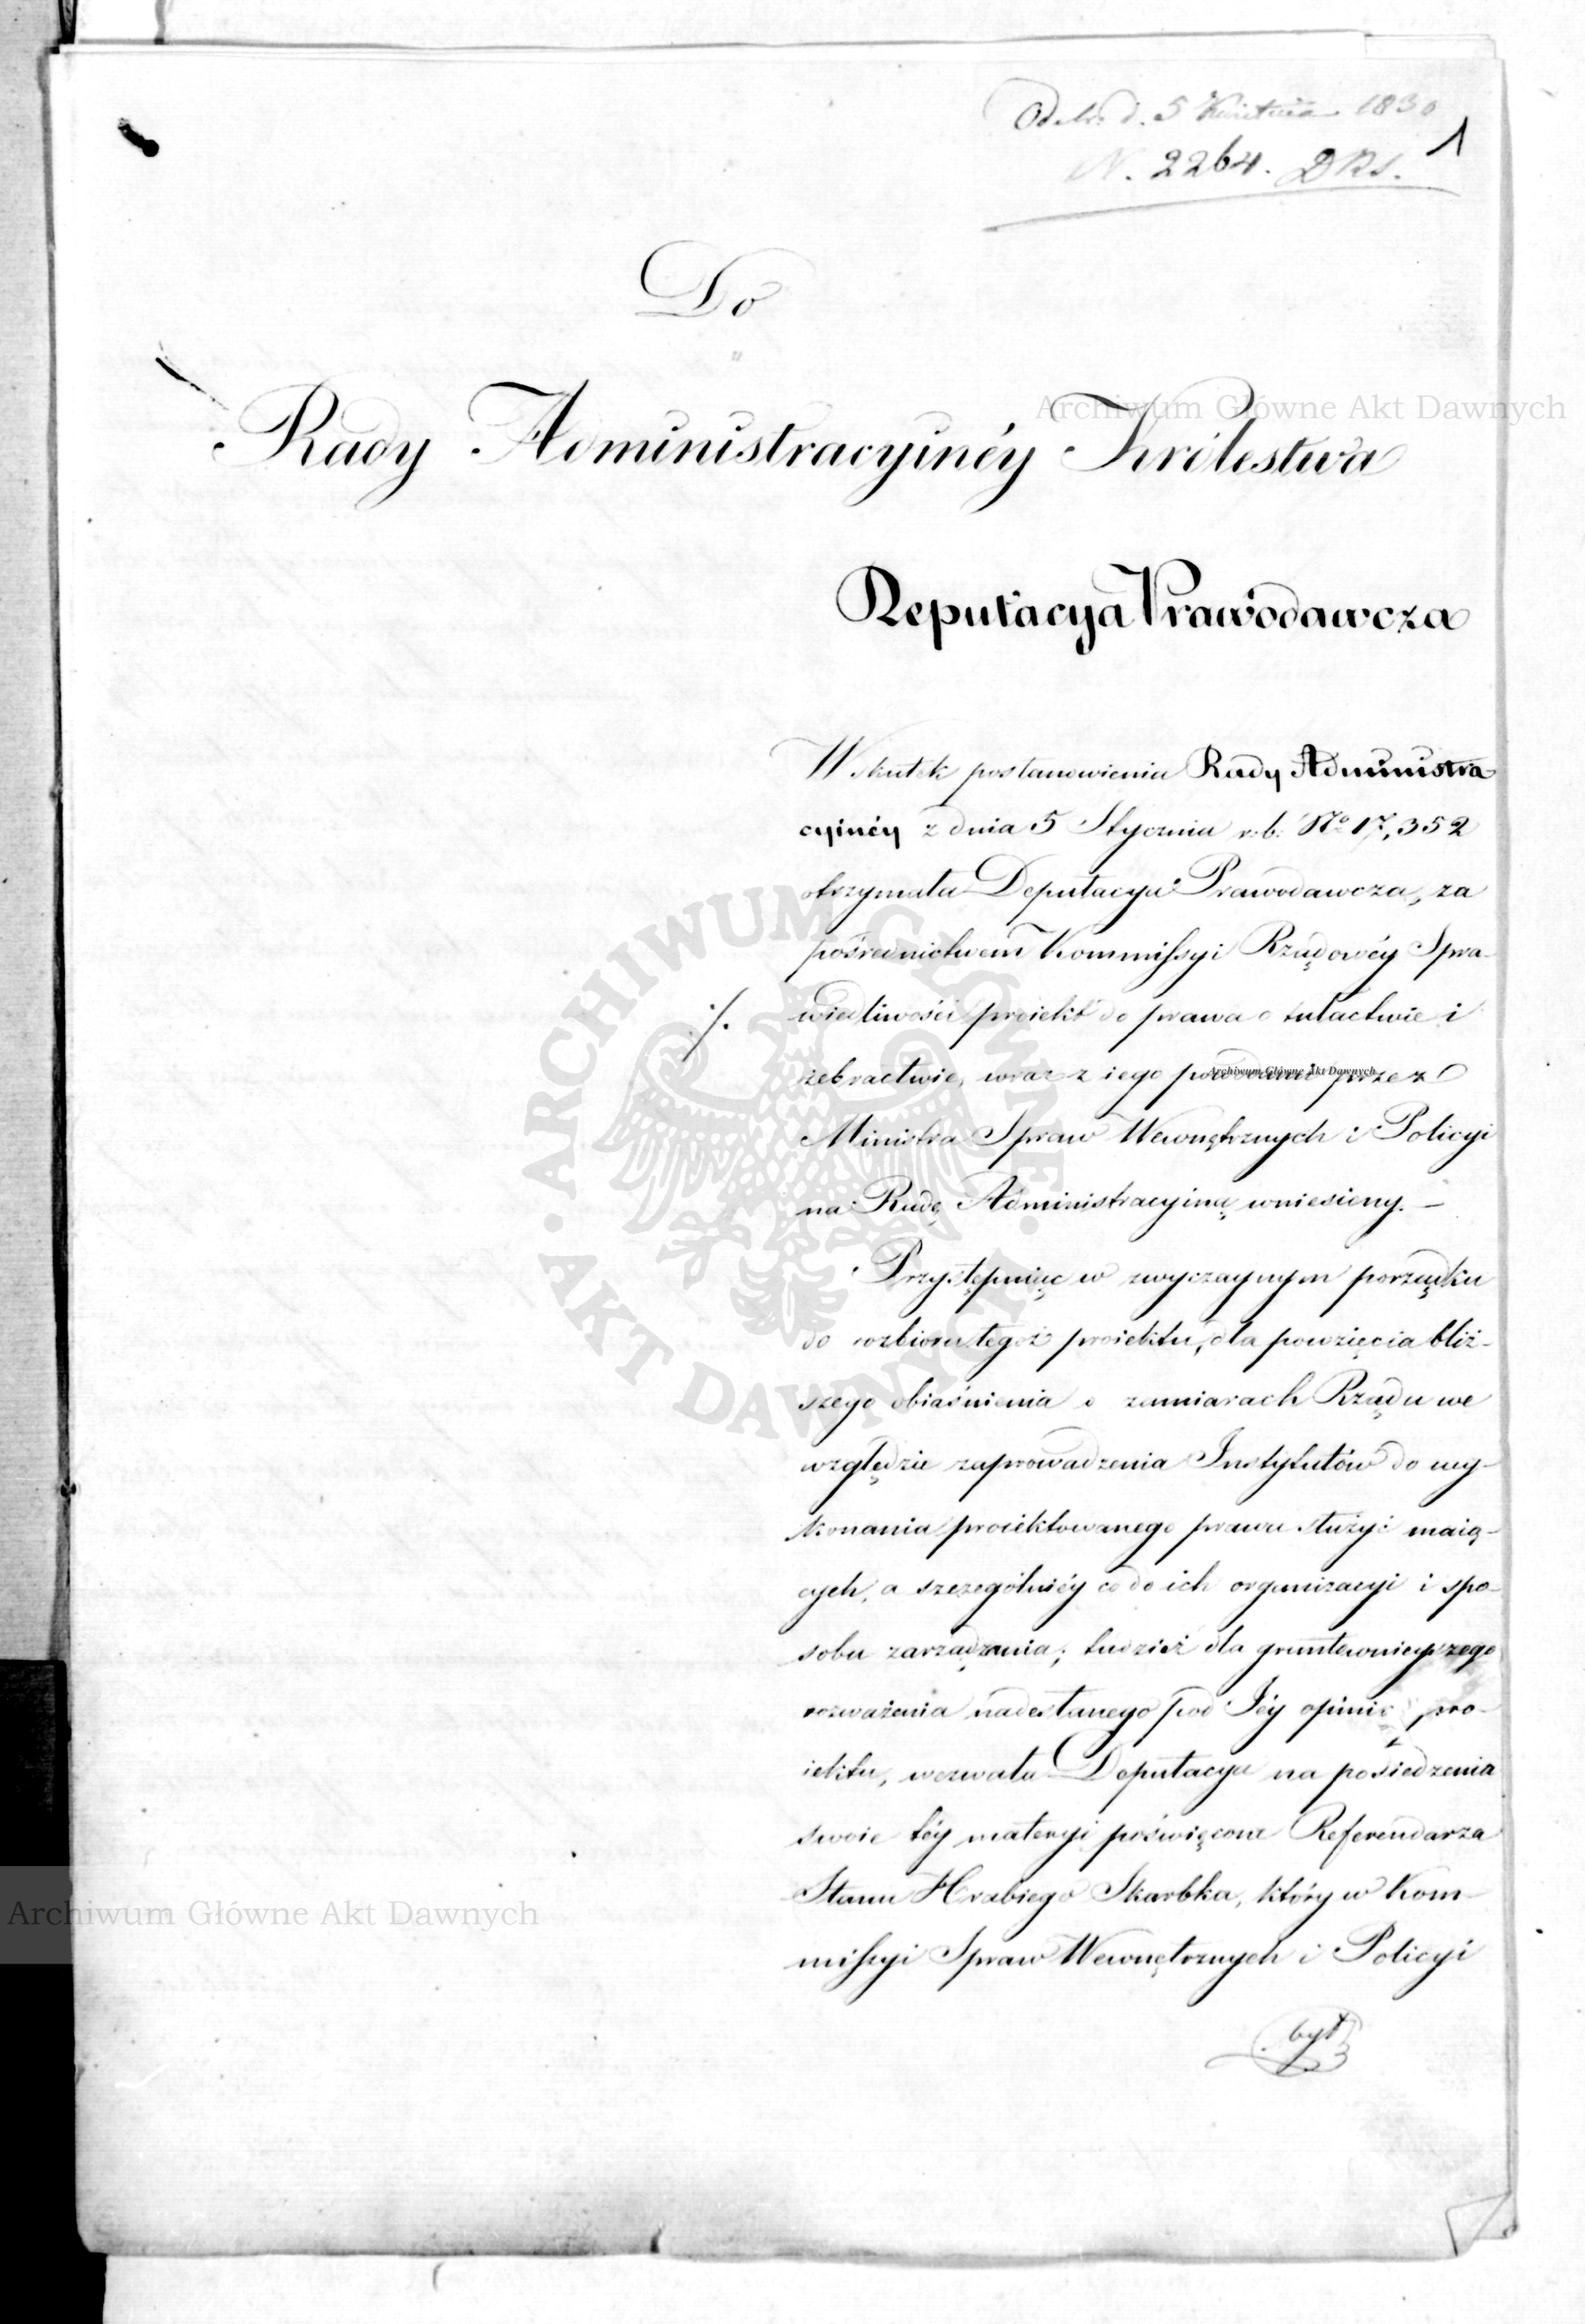 Odebr. d. 5 Kwietnia 1830
N. 2264. DRS.
1
Do
Rady Administracyinéy Królestwa
Deputacya Prawodawcza
W skutek postanowienia Rady Administra
cyinéy z dnia 5 Stycznia r.b. No 17,352
otrzymała Deputacya Prawodawcza, za
pośrednictwem Kommissyi Rządowéy Spra-
wiedliwości proiekt do prawa o tułactwie i
żebractwie, wraz z iego powodami przez
Ministra Spraw Wewnętrznych i Policyi
na Radę Administracyiną wniesiony. —
Przystępuiąc w zwyczaynym porządku
do rozbioru tegoż proiektu, dla powzięcia bliż-
szego obiaśnienia o zamiarach Rządu we
względzie zaprowadzenia Instytutów do wy-
konania proiektowanego prawa służyć maią-
cych, a szczególniéy co do ich organizacyi i spo-
sobu zarządzania; tudzież dla gruntownieyszego
rozważenia nadesłanego pod Jéy opinię pro-
iektu, wezwała Deputacya na posiedzenia
swoie téy materyi poświęcone Referendarza
Stanu Hrabiego Skarbka, który w Kom-
missyi Spraw Wewnętrznych i Policyi
był
Archiwum Główne Akt Dawnych
Archiwum Główne Akt Dawnych
Archiwum Główne Akt Dawnych
ARCHIWUM GŁÓWNE AKT DAWNYCH